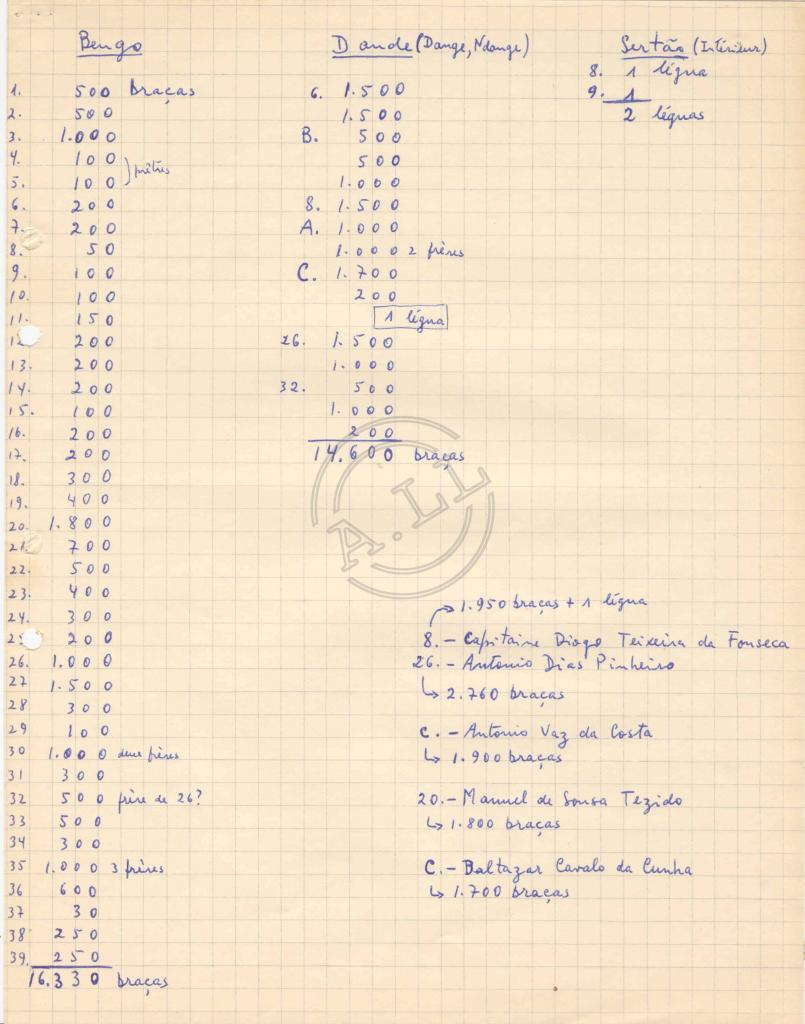 Bengo
1. 500 braças
2. 500
3. 1.000
4. 100
5. 100 } prêtres
6. 200
7. 200
8. 50
9. 100
10. 100
11. 150
12 200
13. 200
14. 200
15. 100
16. 200
17. 200
18. 300
19. 400
20. 1.800
21 700
22. 500
23. 400
24. 300
25 200
26. 1.000
27 1.500
28 300
29 100
30 1.000 deux frères
31 300
32 500 frère de 26?
33 500
34 300
35 1.000 3 frères
36 600
37 30
38 250
39. 250
16.330 braças
Dande (Dange, Ndange)
6. 1.500
1.500
B. 500
500
1.000
8. 1.500
A. 1.000
1.000 2 frères
C. 1.700
200
1 légua
26. 1.500
1.000
32. 500
1.000
200
14.600 braças
Sertão (Intérieur)
8. 1 légua
9. 1
2 léguas
1.950 braças + 1 légua
8. - Capitaine Diogo Teixeira da Fonseca
26. - Antonio Dias Pinheiro
↳ 2.760 braças
C. - Antonio Vaz da Costa
↳ 1.900 braças
20. - Manuel de Sousa Tezido
↳ 1.800 braças
C. - Baltazar Cavalo da Cunha
↳ 1.700 braças
A.LL